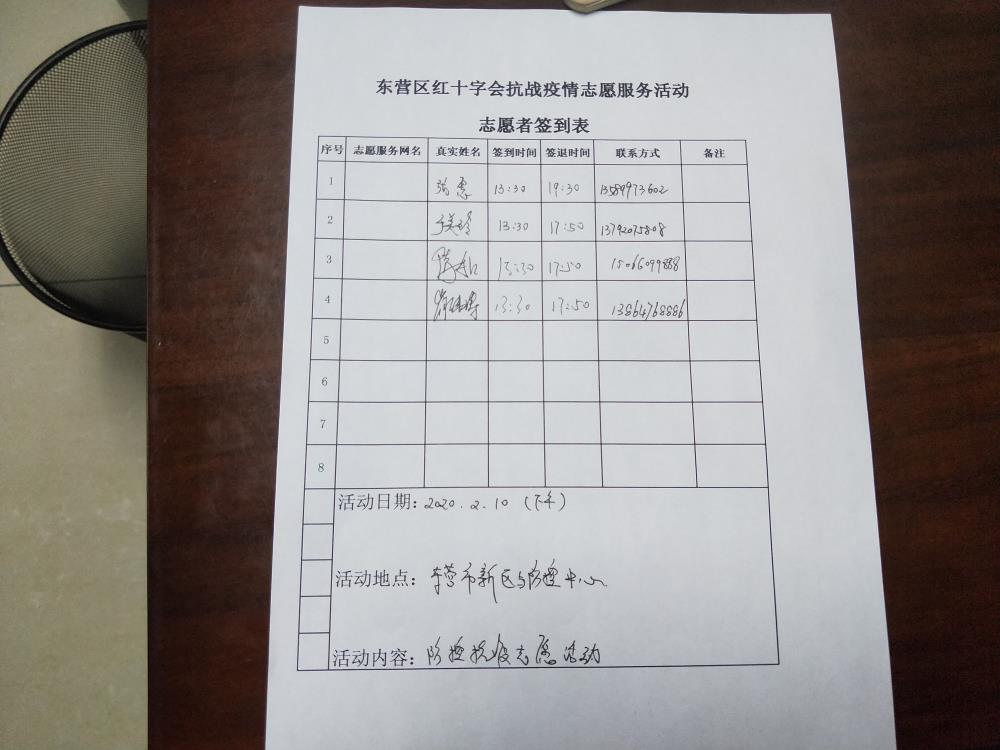 东营区红十字会抗战疫情志愿服务活动
志愿者签到表
序号 志愿服务网名 真实姓名 签到时间 签退时间 联系方式 备注
1 张惠 13:30 19:30 13589973602
2 13:30 17:50 13792075808
3 13:30 17:50 15066099888
4 13:30 17:50 13864768886
5
6
7
8
活动日期: 2020.2.10 (下午)
活动地点: 东营市新区 中心
活动内容: 防控抗疫志愿活动